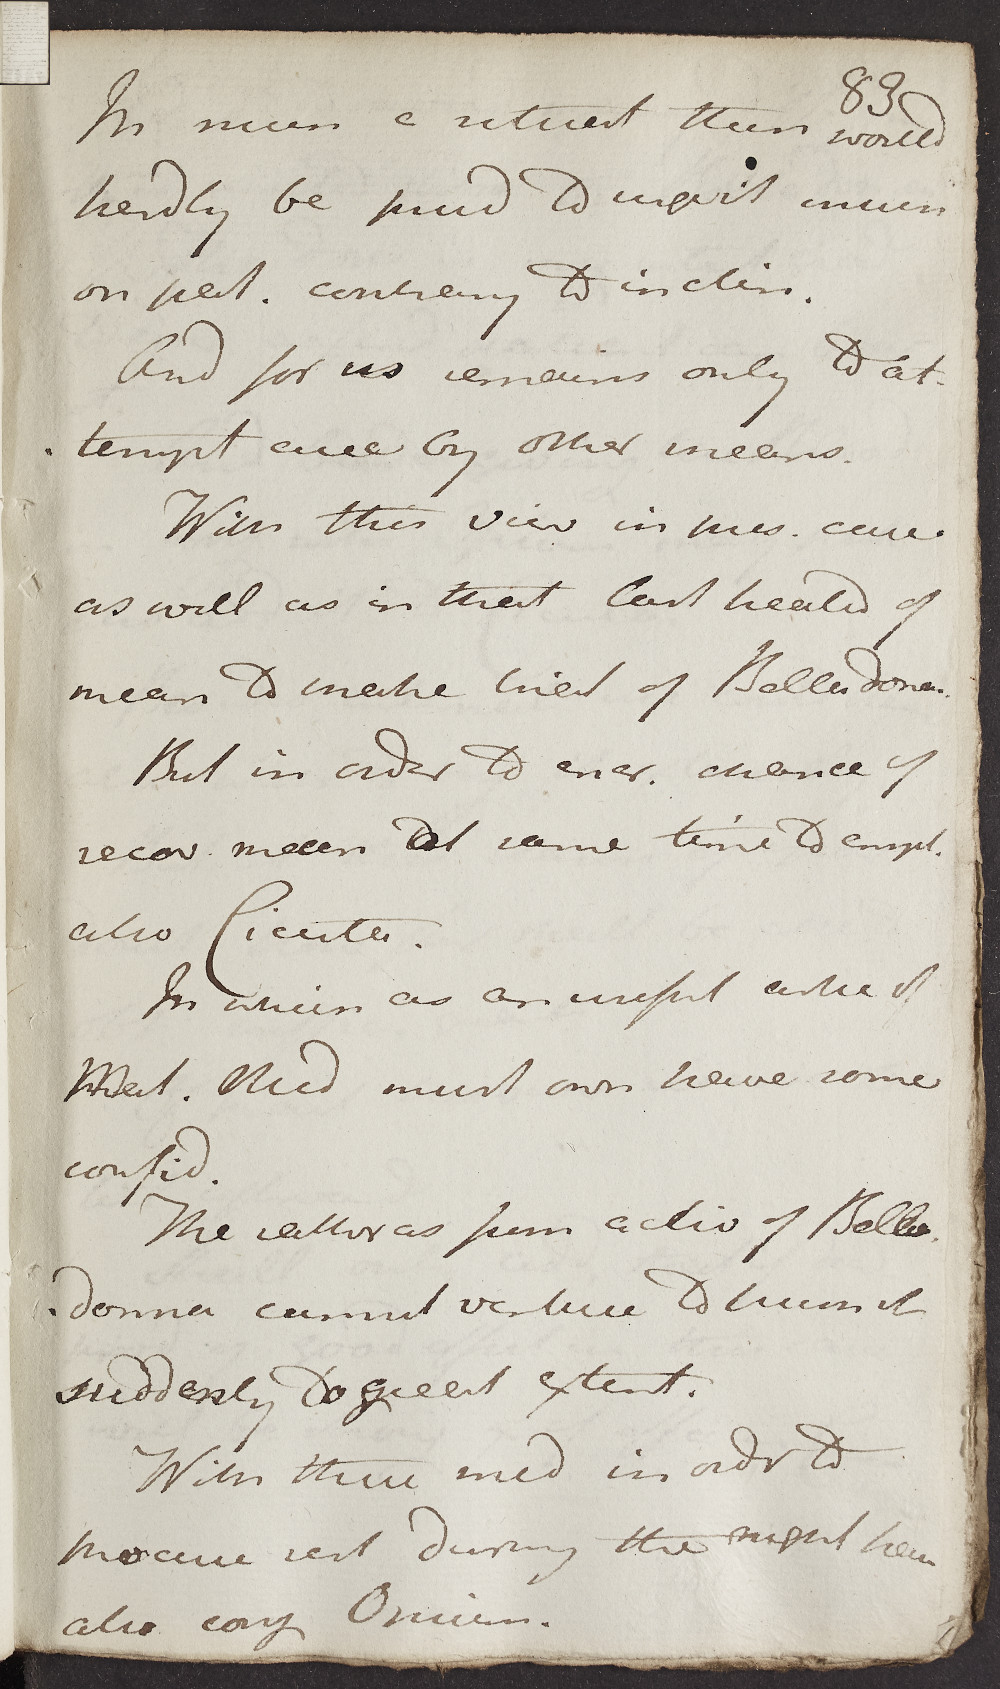 83
In such a situat. then would
hardly be prud to urge it much
on pat. contrary to inclin.
And for us remains only to at-
tempt cure by other means.
With this view in pres. case
as well as in that last treated of
mean to make trial of Belladonna.
But in order to encr. chance of
recov. mean at same time to empl.
also Cicuta.
In which as an useful article of
Mat. Med must own have some
confid.
The rather as from action of Bella-
donna cannot venture to trust it
suddenly to great extent.
With these med in order to
procure rest during the night have
also conj Opium.